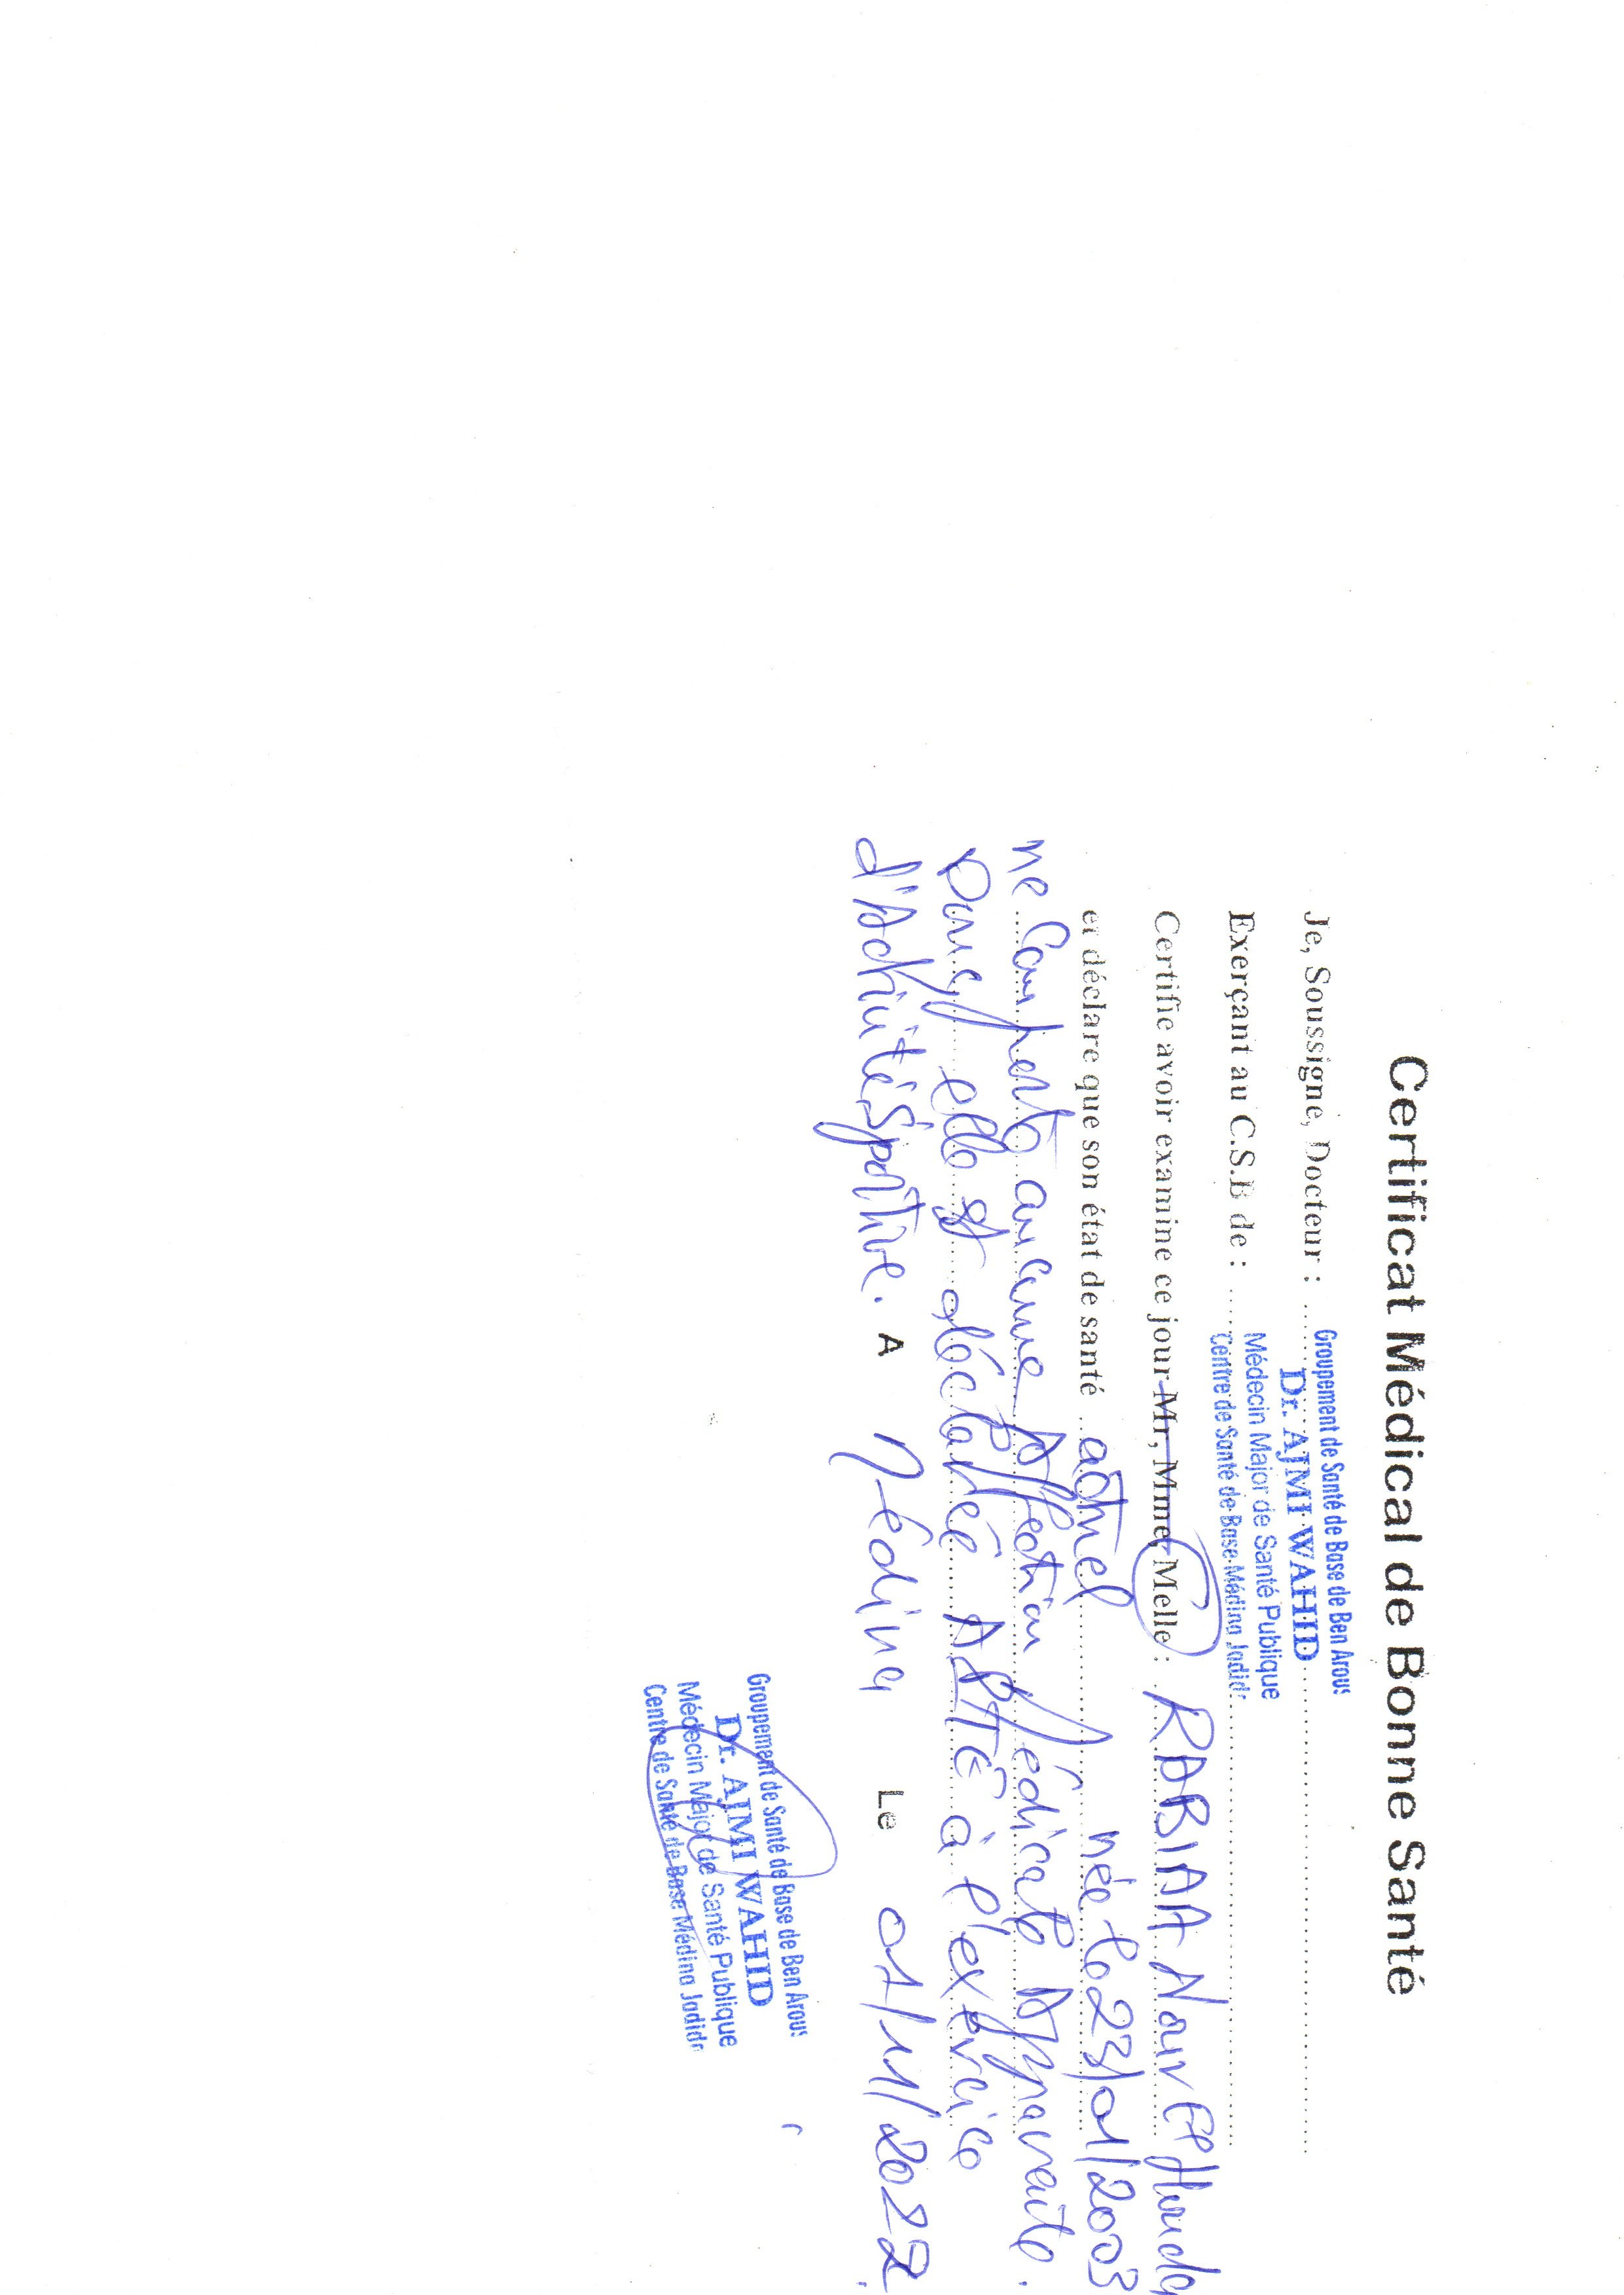 Certificat Médical de Bonne Santé
Groupement de Santé de Base de Ben Arous
Je, Soussigne, Docteur : Dr. AJMI WAHID
Médecin Major de Santé Publique
Exerçant au C.S.B de : Centre de Santé de Base Médina Jadida
Certifie avoir examine ce jour Mr, Mme, Melle : RABIAA Nour El Houda
et déclare que son état de santé actuel née le 23/01/2003
ne Comporte aucune Affection Médicale Apparente.
Donc, elle est déclarée APTE à l'exercice
d'Activité Sportive. A Médina Le 01/11/2022
Groupement de Santé de Base de Ben Arous
Dr. AJMI WAHID
Médecin Major de Santé Publique
Centre de Santé de Base Médina Jadida